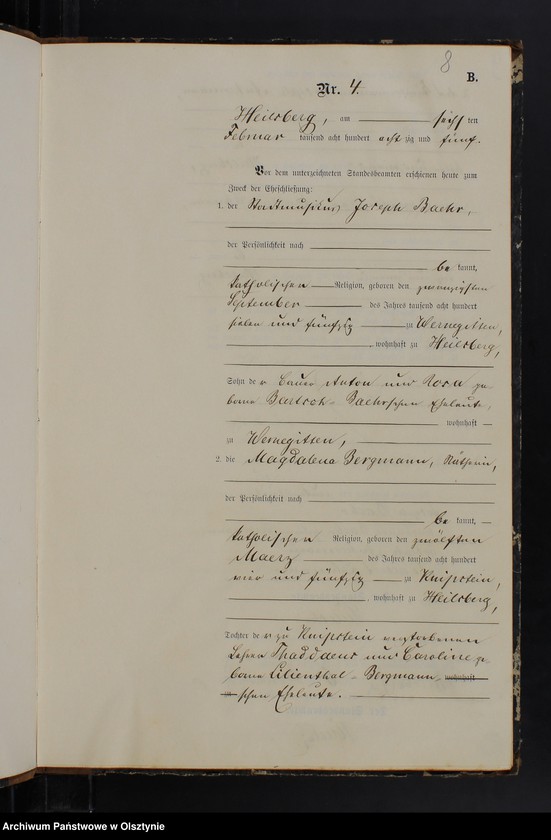 8
B.
Nr. 4.
Heilsberg, am sechs ten
Februar tausend acht hundert acht zig und fünf.
Vor dem unterzeichneten Standesbeamten erschienen heute zum
Zweck der Eheschließung:
1. der Stadtmusikus Joseph Baehr,
der Persönlichkeit nach
be kannt,
katholischen Religion, geboren den zwanzigsten
September des Jahres tausend acht hundert
sieben und fünfzig zu Wernegitten,
, wohnhaft zu Heilsberg,
Sohn der Bauer Anton und Rosa ge-
borne Bartsch-Baehrschen Eheleute,
wohnhaft
zu Wernegitten,
2. die Magdalena Bergmann, Nätherin,
der Persönlichkeit nach
be kannt,
katholischen Religion, geboren den zwölften
Maerz des Jahres tausend acht hundert
vier und fünfzig zu Knipstein,
, wohnhaft zu Heilsberg,
Tochter der zu Knipstein verstorbenen
Lehrer Thaddaeus und Caroline ge-
borne Lilienthal-Bergmann wohnhaft
zu schen Eheleute.
Archiwum Państwowe w Olsztynie